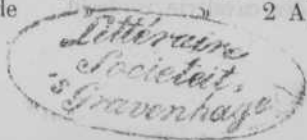 de » » 2 A
Littéraire
Societeit.
'sGravenhage